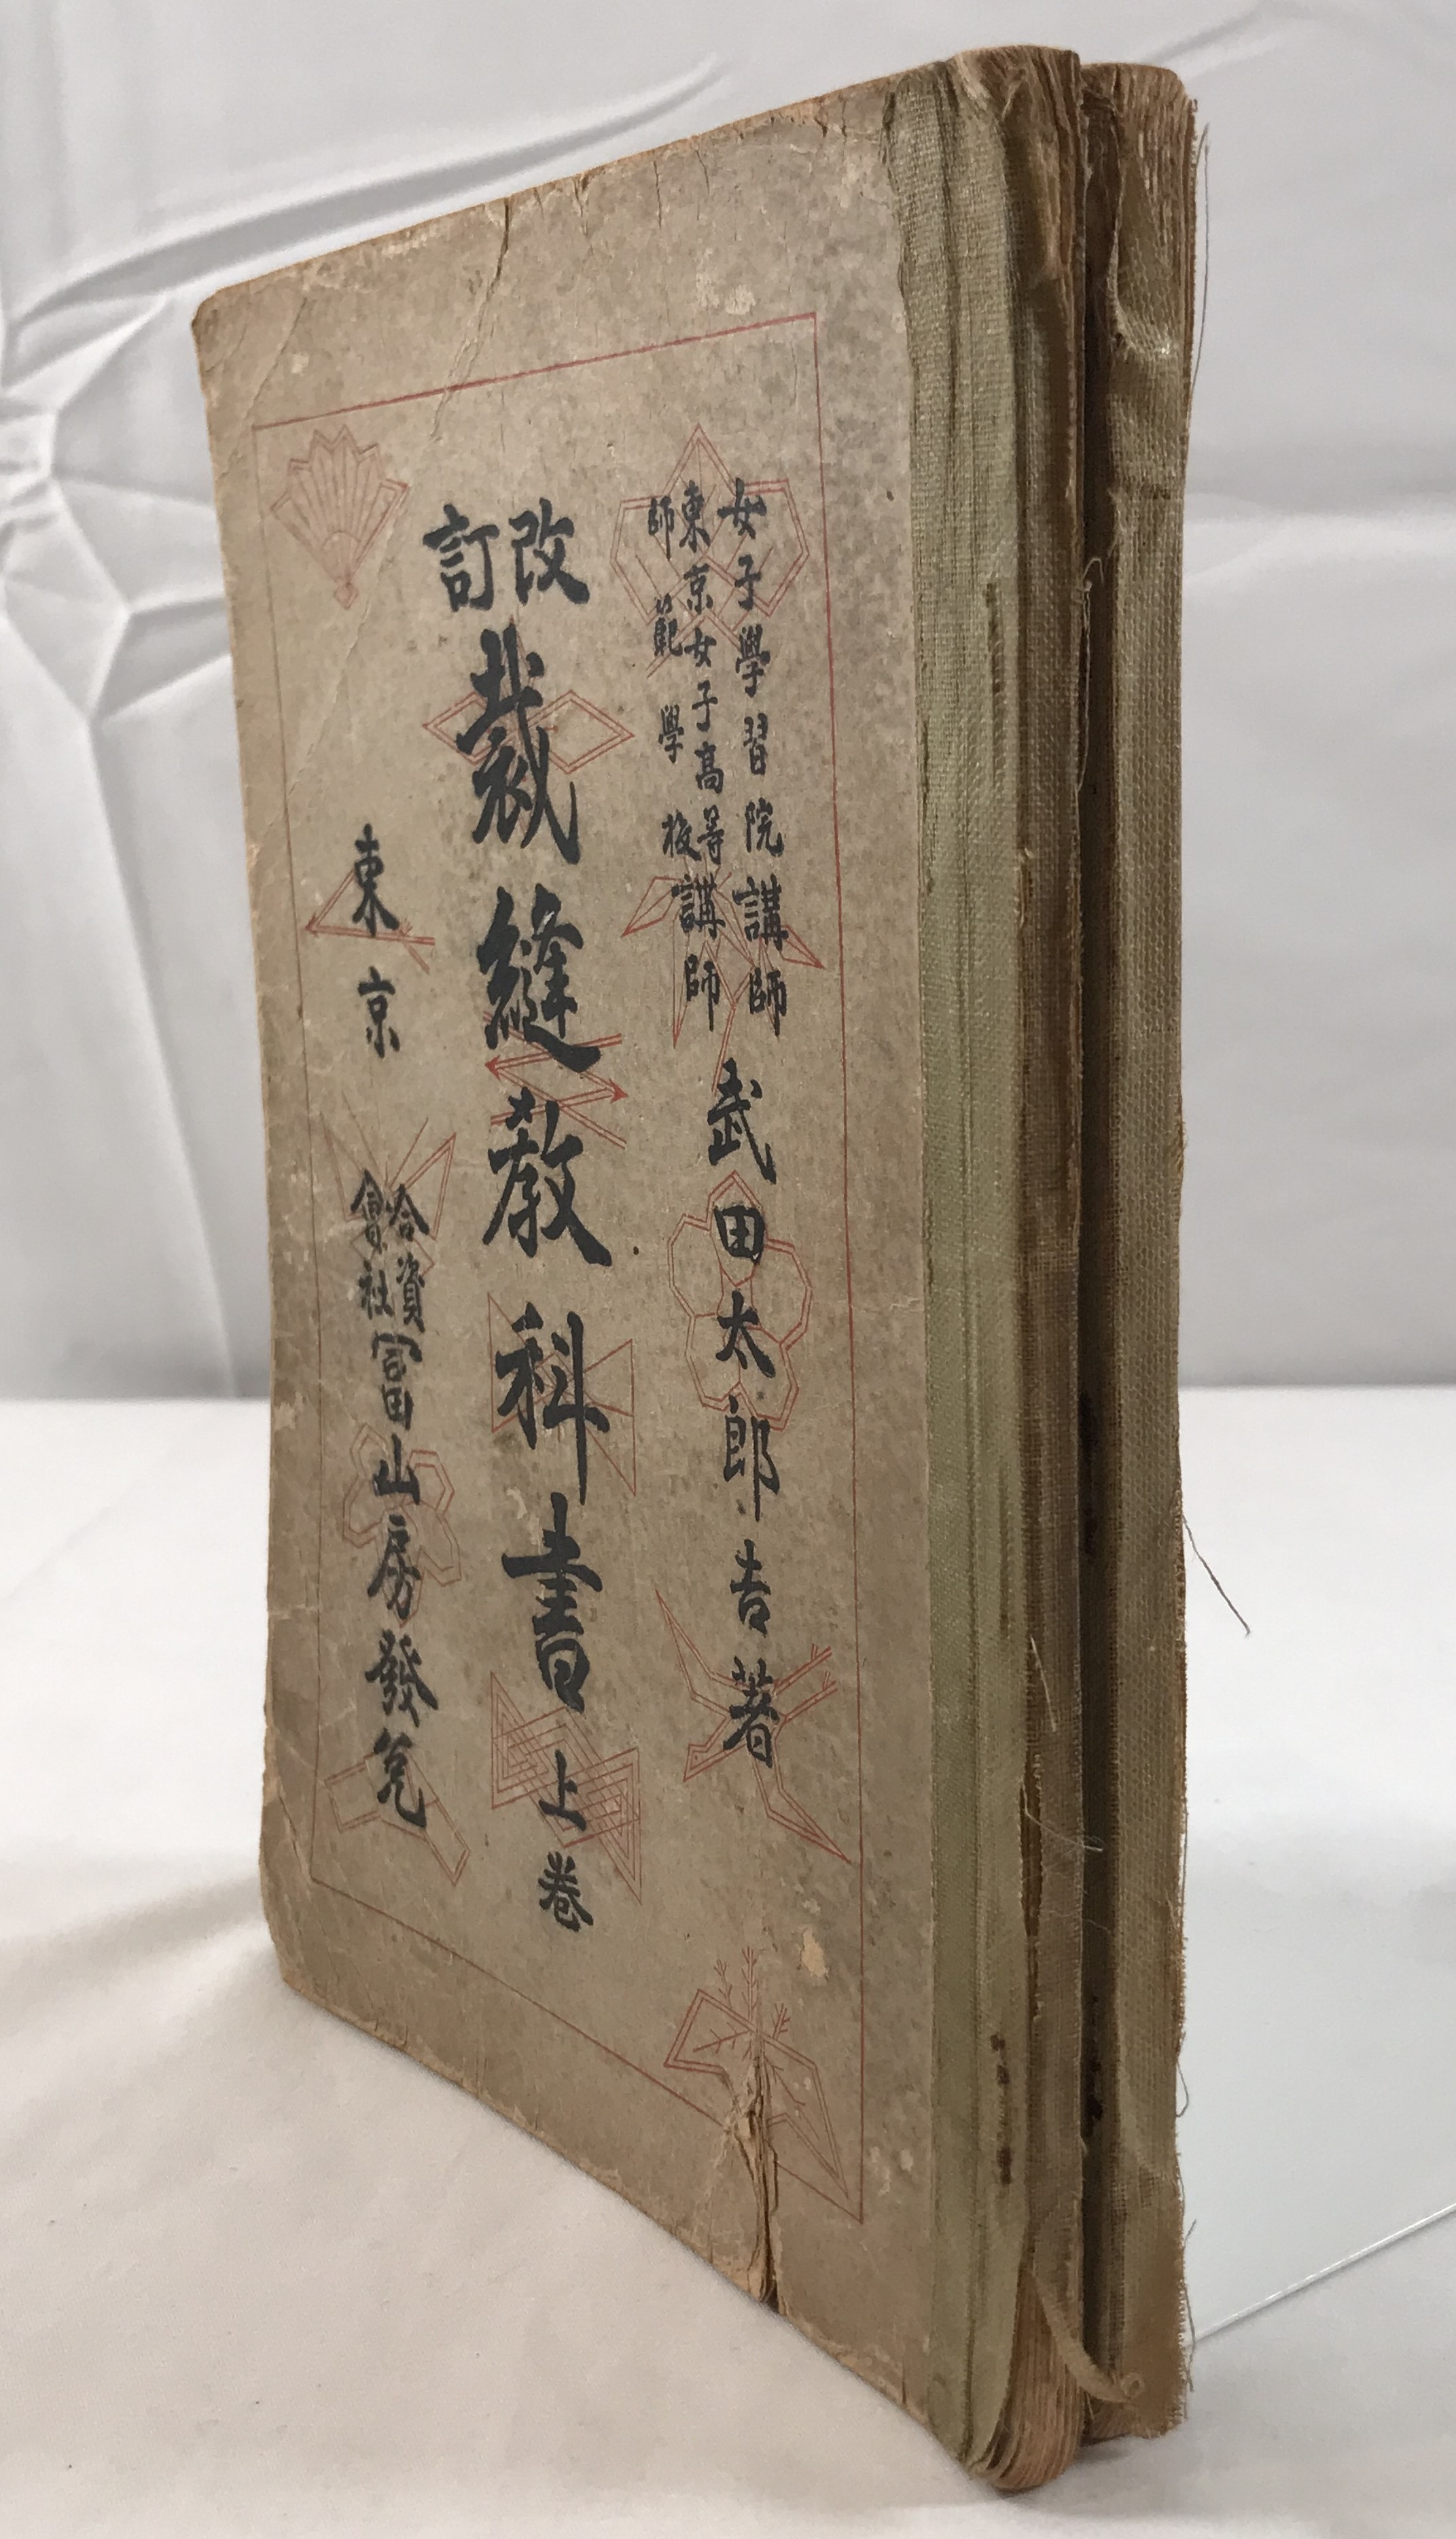 女子學習院講師
東京女子高等師範學校講師
武田太郎吉著
改訂裁縫教科書上卷
東京 合資會社冨山房發兌